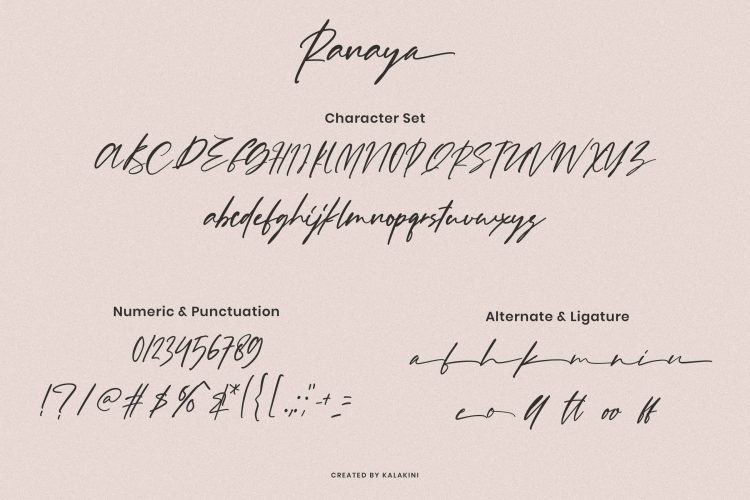 Ranaya
Character Set
ABCDEFGHIJKLMNOPQRSTUVWXYZ
abcdefghijklmnopqrstuvwxyz
Numeric & Punctuation
0123456789
!?/@#$%^&*({[.,;:"-+=
Alternate & Ligature
a f h k m n i u
e o ll tt oo ff
CREATED BY KALAKINI